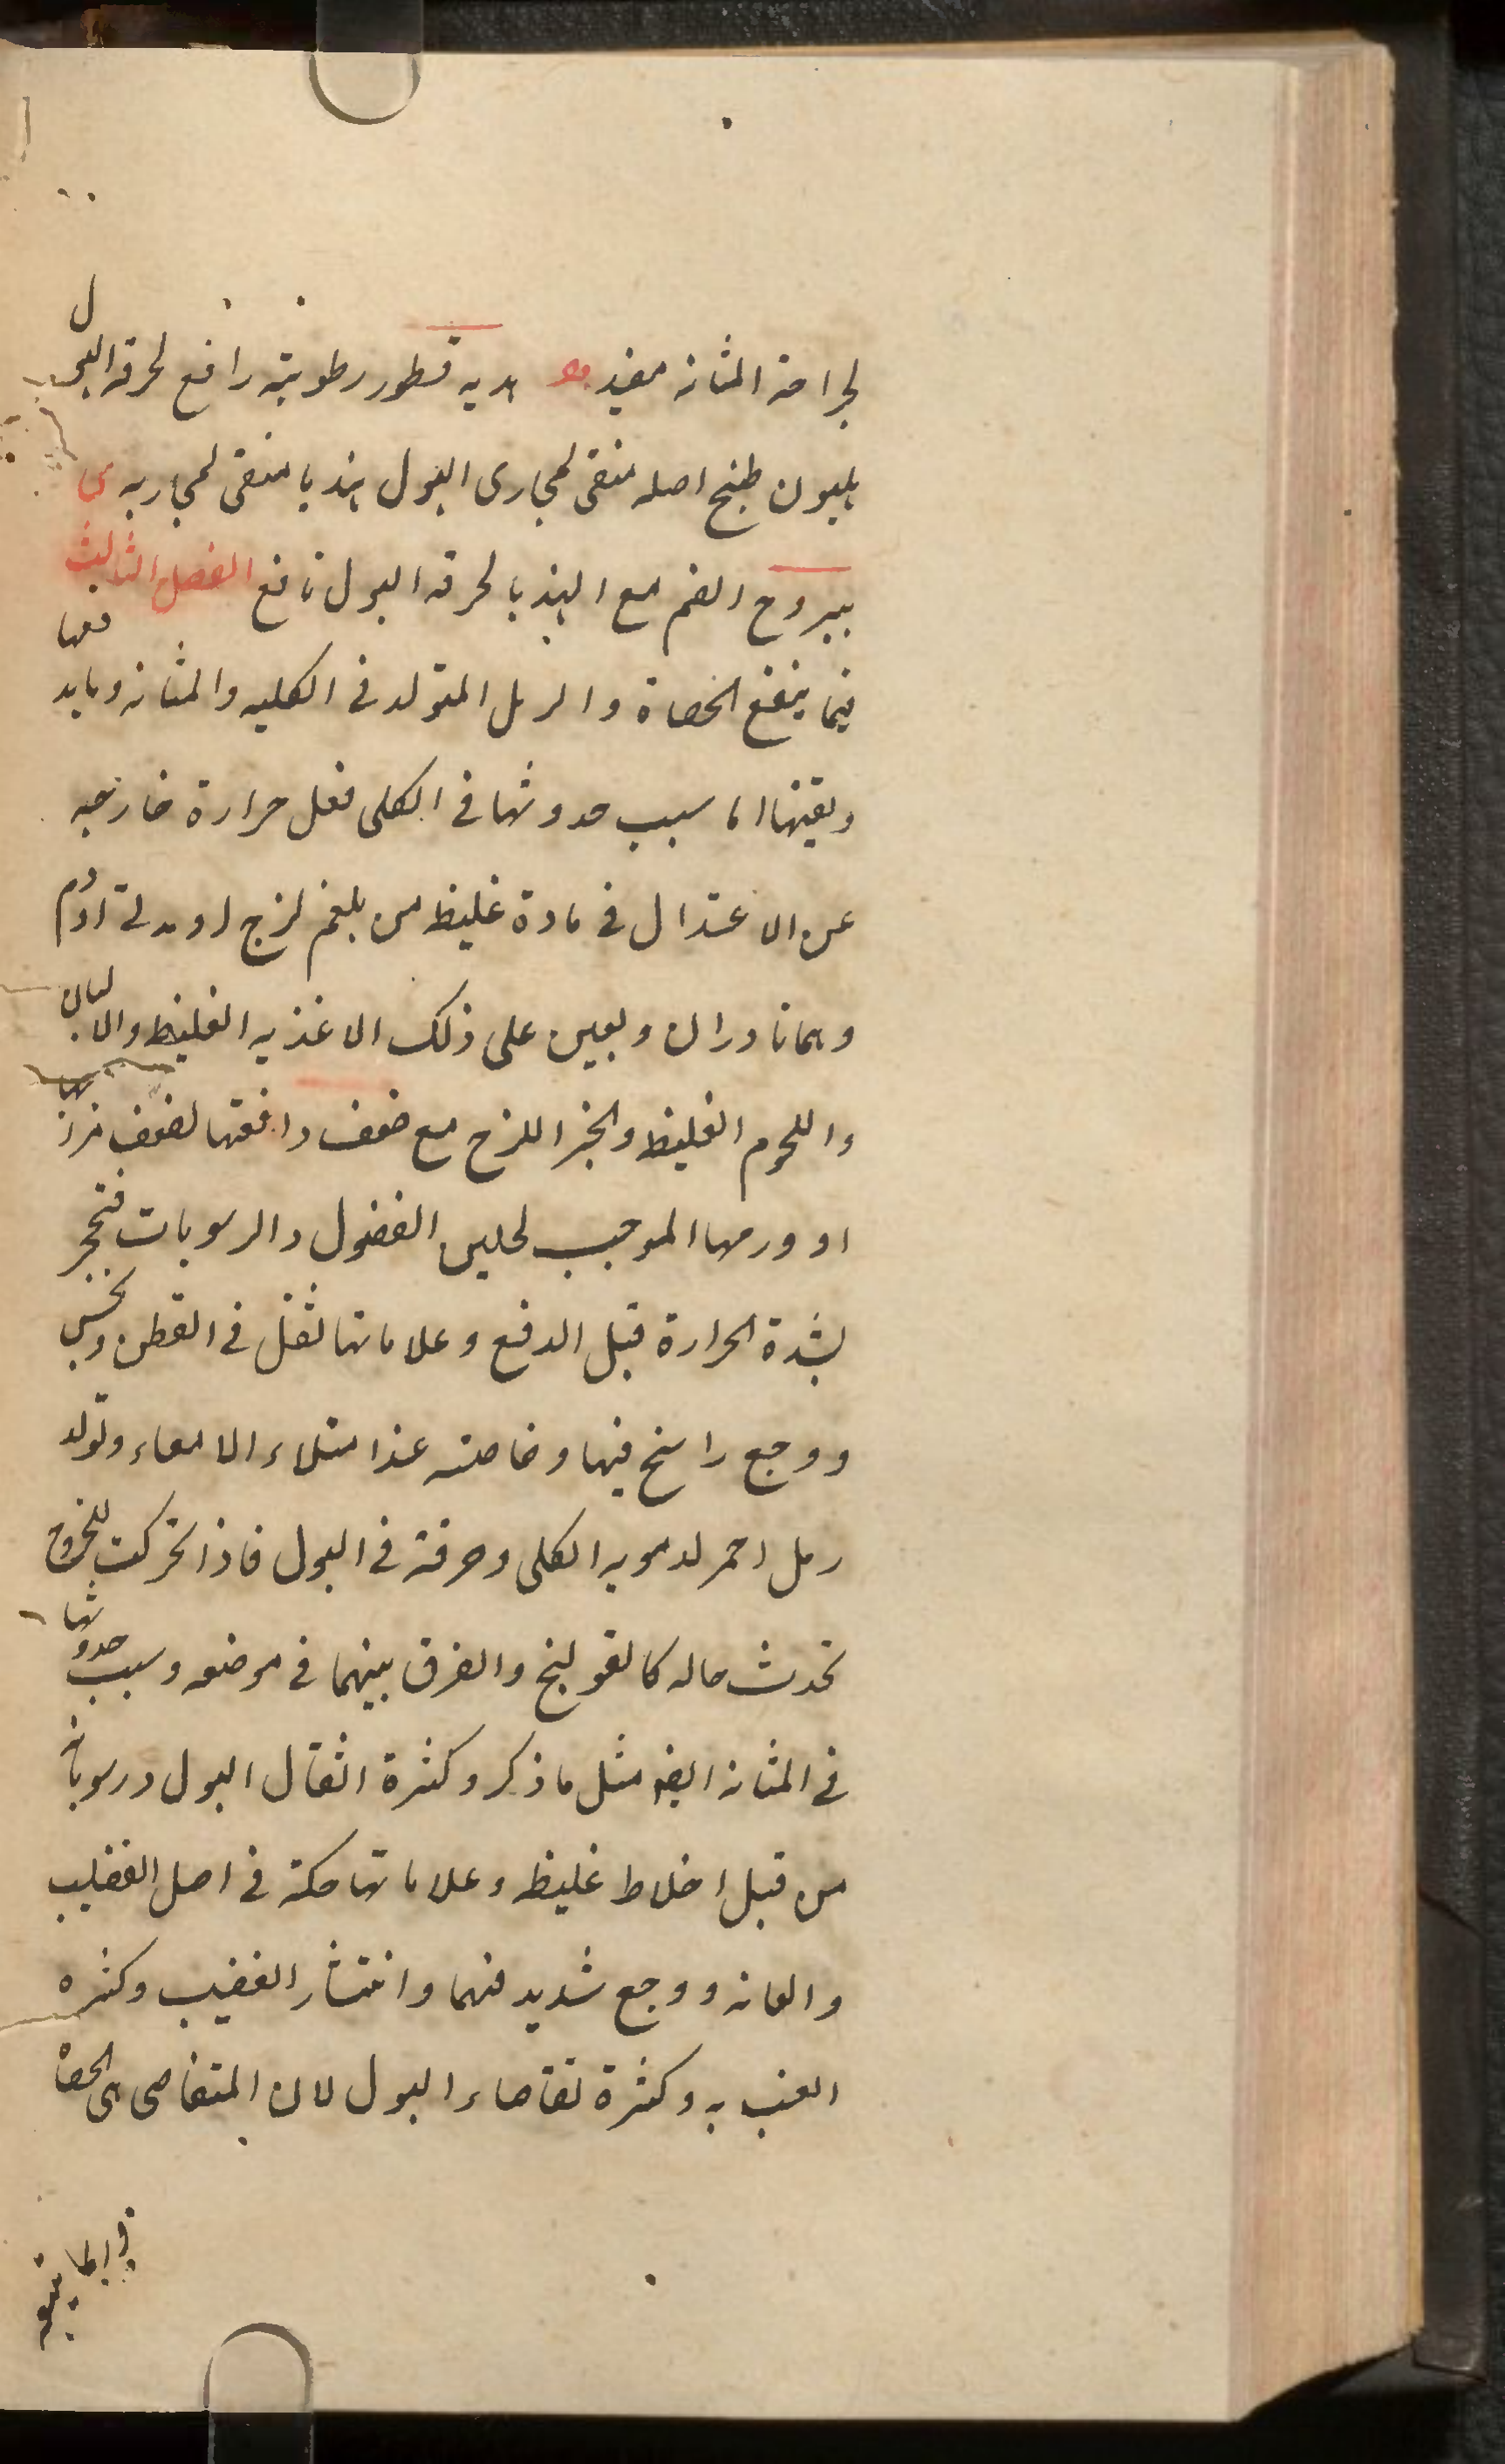 لجراحة المثانة مفيد هدبه قطور رطوبته رافع لحرقة البول
هليون طبخ اصله منقى لمجارى البول هندبا منقى لمجاريه ى
يبروح الضم مع الهندبا لحرقه البول نافع الفصل الثالث
فيما ينفع الحصاة والرمل المتولد فى الكليه والمثانه وما يدفعها
ويفتتها اما سبب حدوثها فى الكلى فعل حرارة خارجه
عن الاعتدال فى مادة غليظ من بلغم لزج او مدة او دم
وهما نادران ويعين على ذلك الاغذيه الغليظ والالبان
واللحوم الغليظ والخبز اللزج مع ضعف دافعتها لضعف مزاجها
او ورمها الموجب لحبس الفضول والرسوبات فتحجر
بشدة الحرارة قبل الدفع وعلاماتها ثقل فى القطن ونخس
ووجع راسخ فيها وخاصته عند امتلاء الامعاء وتولد
رمل احمر لدمويه الكلى وحرقة فى البول فاذا تحركت للخروج
تحدث حاله كالقولنج والفرق بينهما فى موضعه وسبب حدوثها
فى المثانه ايضا مثل ما ذكر وكثرة اثقال البول ورسوباته
من قبل اخلاط غليظه وعلاماتها حكة فى اصل القضيب
والعانه ووجع شديد فيهما وانتشار القضيب وكثره
العبث به وكثرة تقاضاء البول لان المتقاضى هى الحصاة